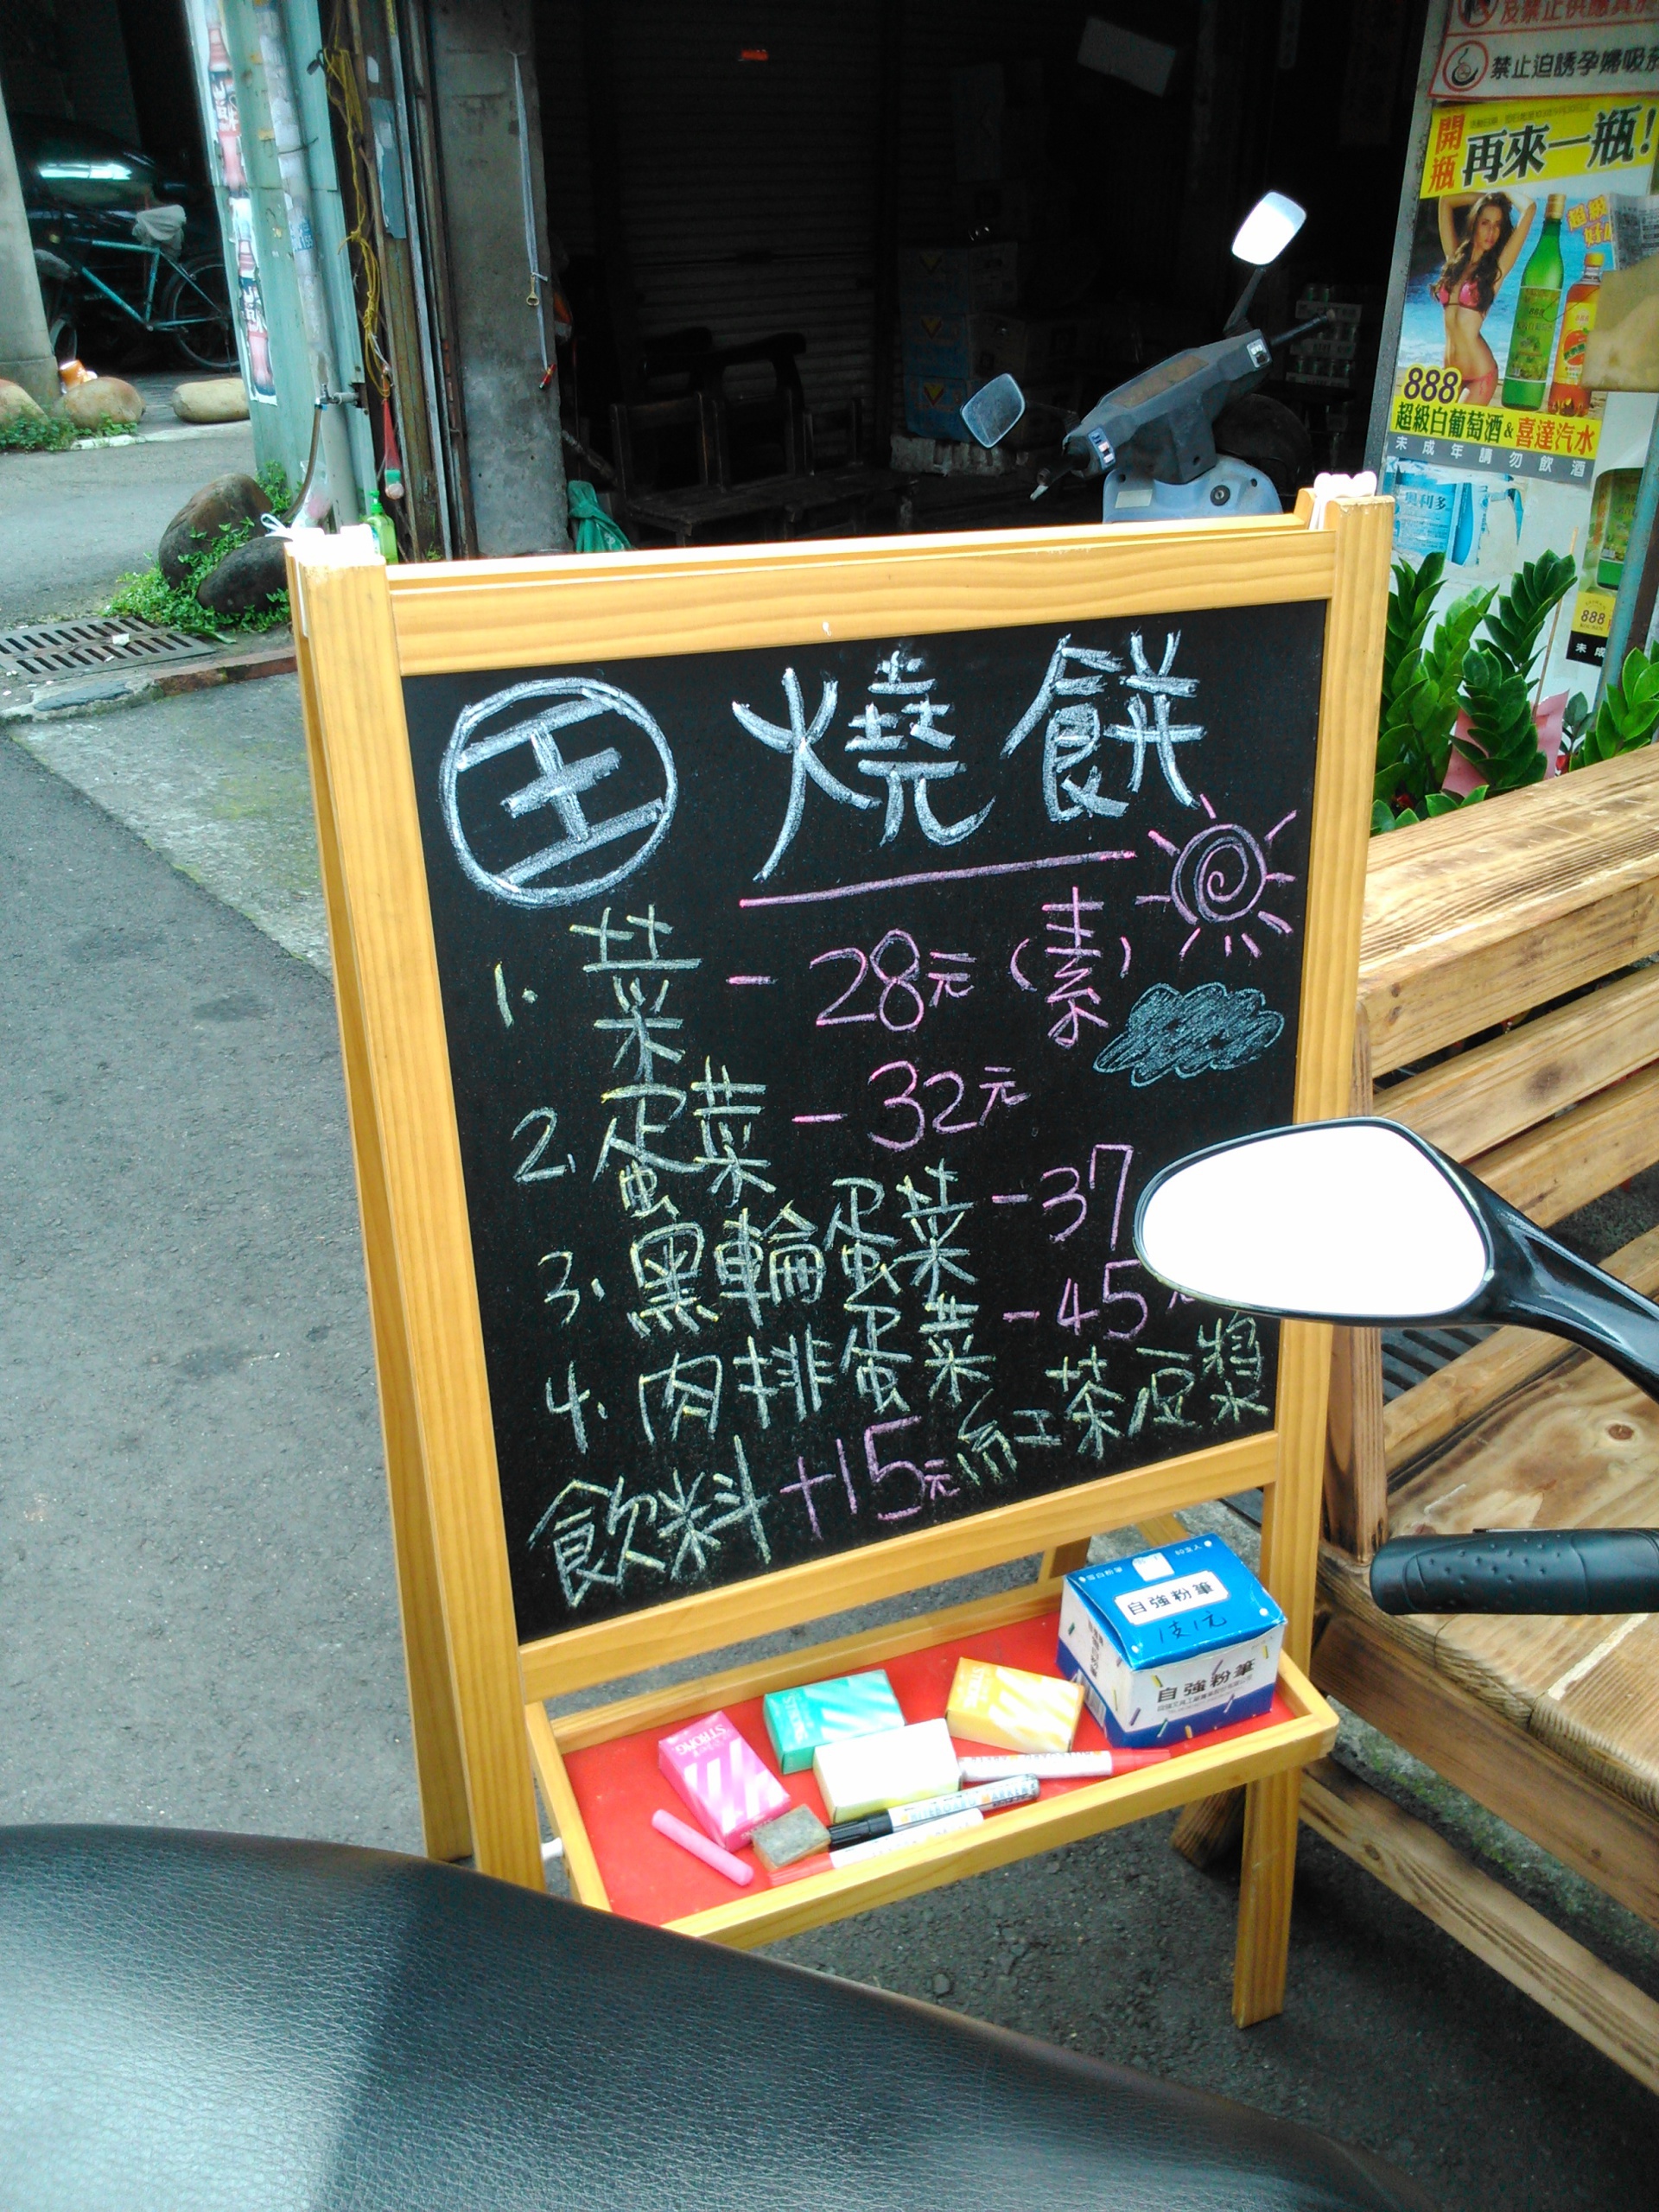 禁止迫誘孕婦吸
開瓶
再來一瓶!
超級
888
超級白葡萄酒&喜達汽水
未成年請勿飲酒
奧利多
888
王 燒餅
1. 菜 - 28元 (素)
2. 蛋菜 - 32元
3. 黑輪蛋菜 - 37
4. 肉排蛋菜 - 45
飲料+15元 紅茶豆漿
自強粉筆
1支1元
自強粉筆
STRONG
WHITEBOARD MARKER